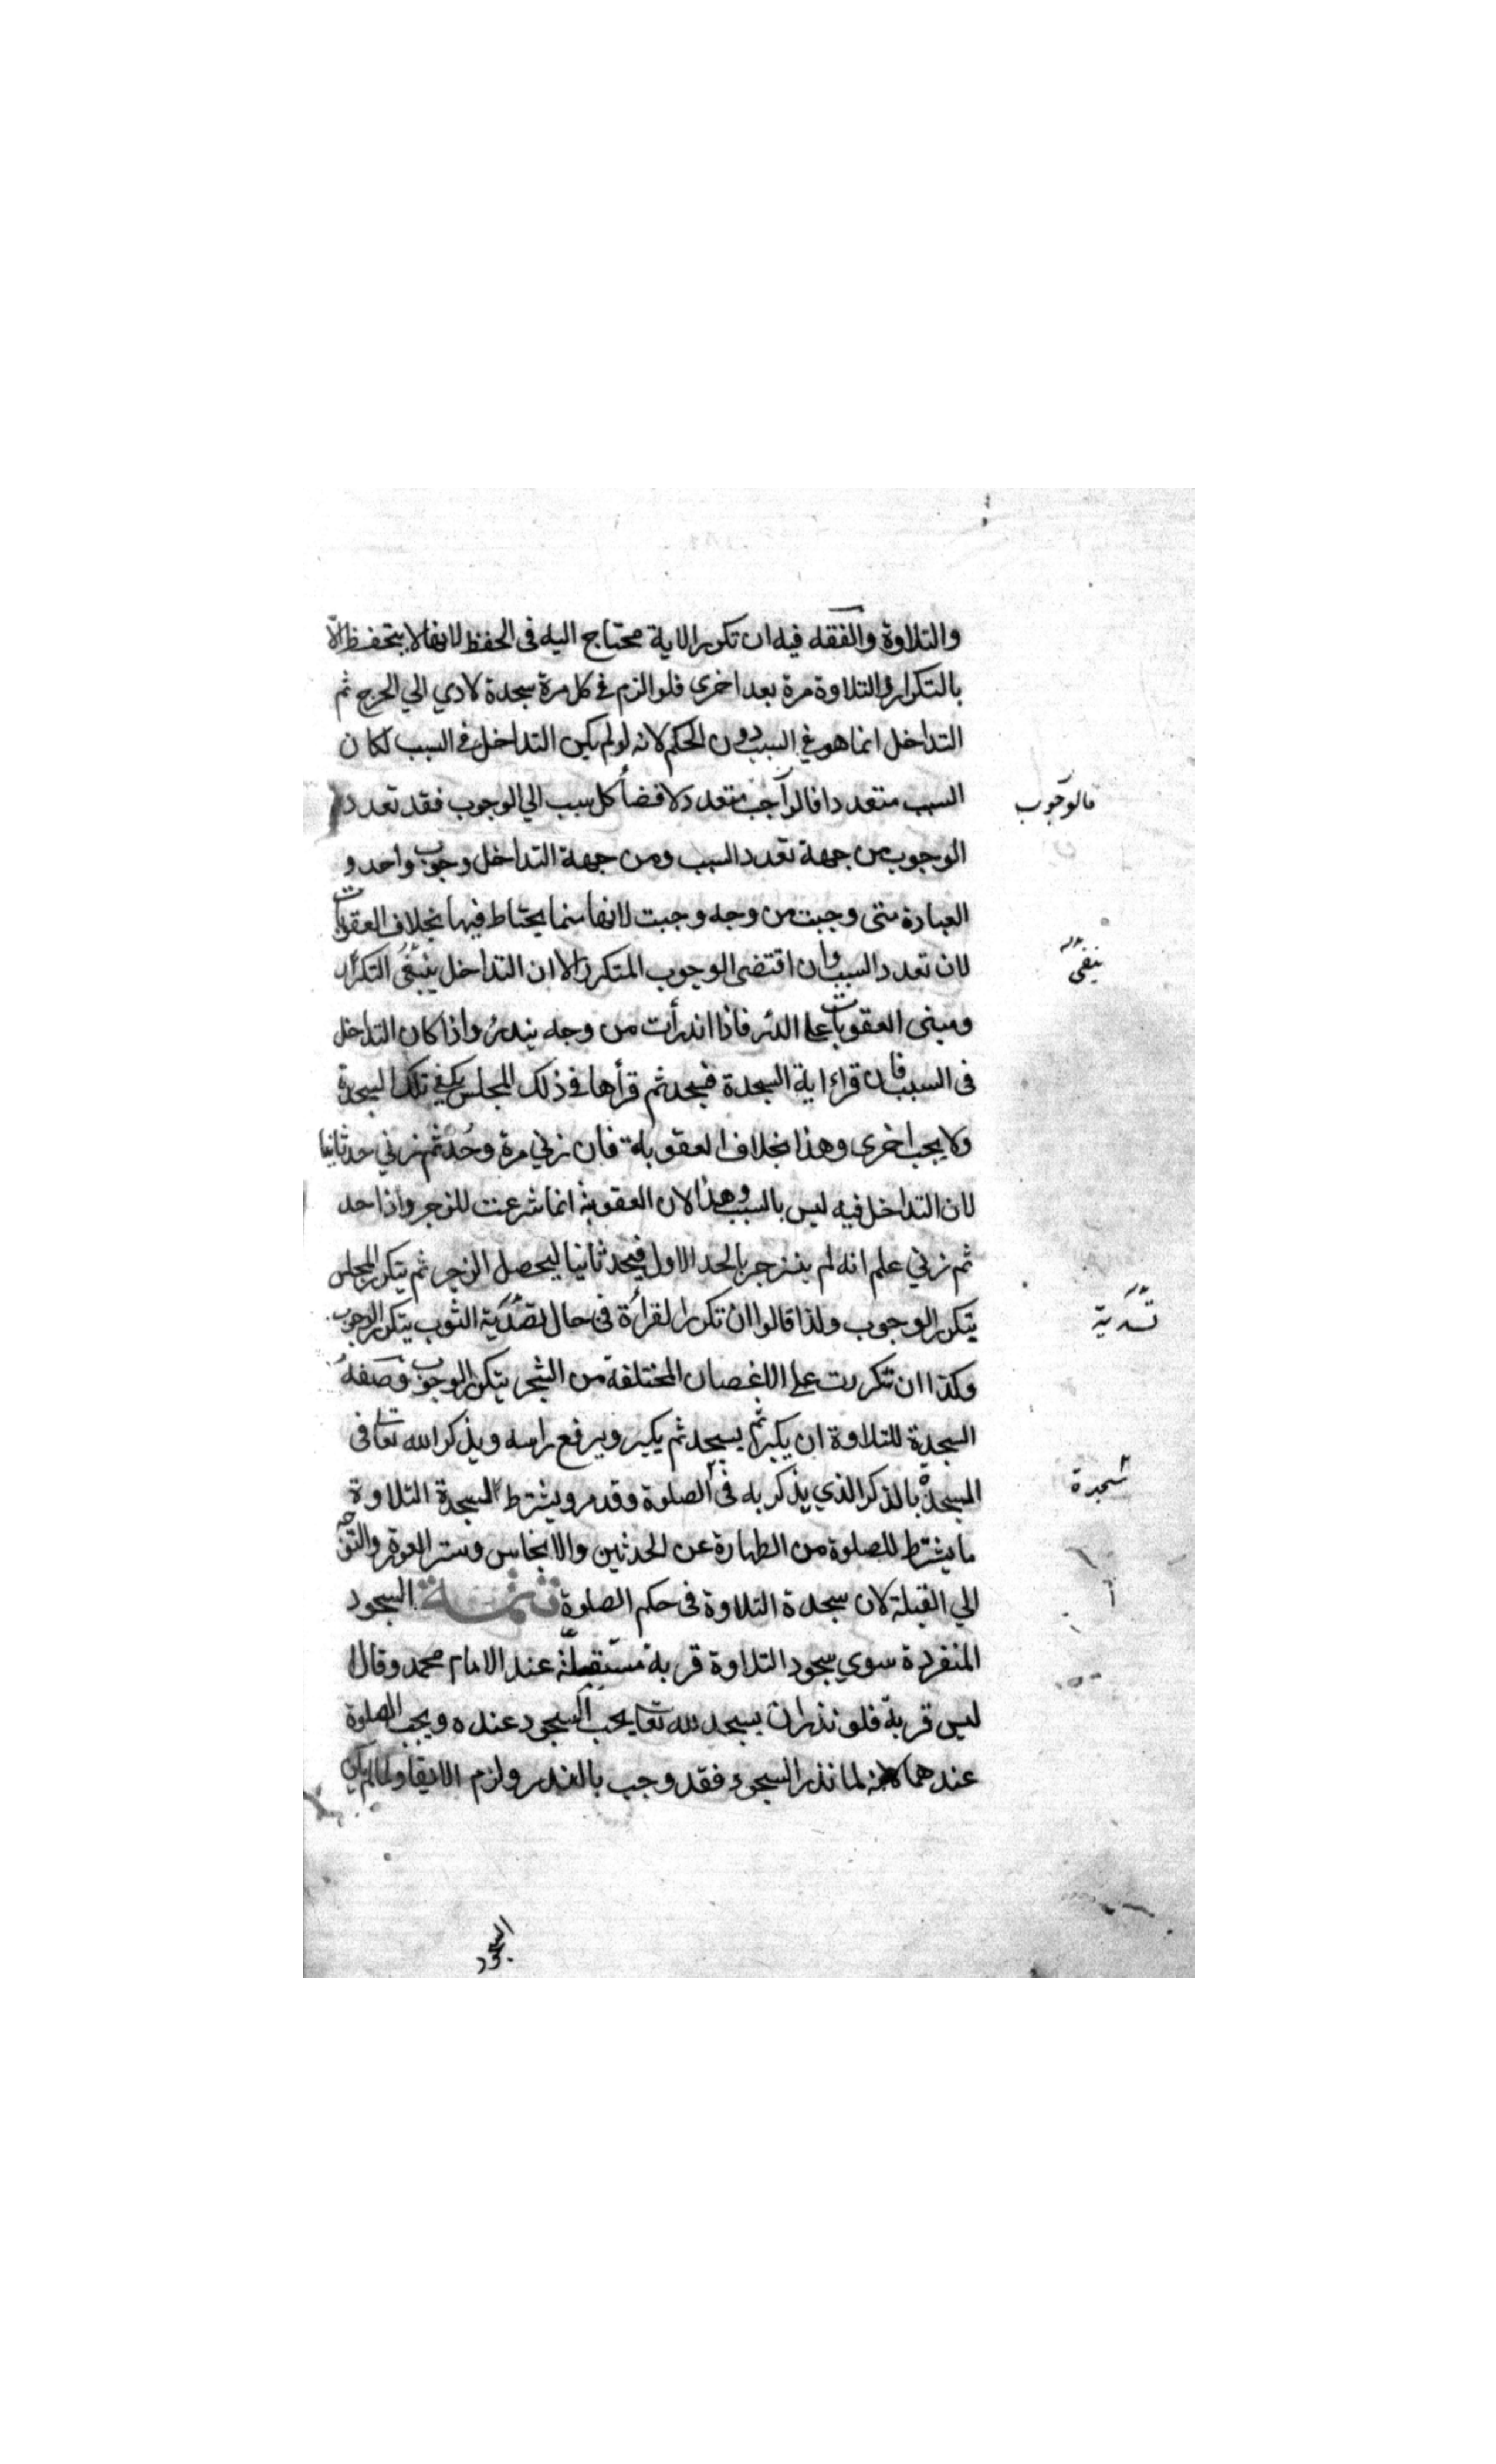 والتلاوة والفقه فيه ان تكرر الاية محتاج اليه فى الحفظ لانها لا يتحفظ الّا
بالتكرار والتلاوة مرة بعد اخرى فلو الزم فى كل مرة سجدة لادي الي الحرج ثم
التداخل انما هو في السبب دون الحكم لانه لو لم يكن التداخل فى السبب لكان
السبب متعددا فالواجب متعدد لافضاء كل سبب الي الوجوب فقد تعدد
فالوجوب
الوجوب من جهة تعدد السبب ومن جهة التداخل وجوب واحد و
العبادة متى وجبت من وجه وجبت لانها مما يحتاط فيها بخلاف العقوبات
لان تعدد السبب وان اقتضى الوجوب المتكرر الا ان التداخل ينبغى التكرار
ينفى
ومبنى العقوبات على الدرء فاذا اندرأت من وجه يندرء واذا كان التداخل
فى السبب فان قراء اية السجدة فسجد ثم قرأها فى ذلك المجلس يكفي تلك السجدة
ولا يجب اخرى وهذا بخلاف العقوبة فان زني مرة وحد ثم زني حد ثانيا
لان التداخل فيه ليس بالسبب وهذا لان العقوبة انما شرعت للزجر واذا حد
ثم زني علم انه لم ينزجر بالحد الاول فيحد ثانيا ليحصل الزجر ثم يتكرر المجلس
يتكرر الوجوب ولذا قالوا ان تكرر القراءة فى حال تصدية الثوب يتكرر الوجوب
تسدية
وكذا ان تكررت على الاغصان المختلفة من الشجر يتكرر الوجوب وصفة
السجدة للتلاوة ان يكبر ثم يسجد ثم يكبر ويرفع راسه ويذكر الله تعا فى
المسجدة بالذكر الذي يذكر به فى الصلوة وقد مر ويشترط السجدة التلاوة
سجدة
ما يشترط للصلوة من الطهارة عن الحدثين والانجاس وستر العورة والتوجه
الي القبلة لان سجدة التلاوة فى حكم الصلوة تتمة السجود
المنفردة سوي سجود التلاوة قربة مستقلة عند الامام محمد وقالا
ليس قربة فلو نذر ان يسجد لله تعا يجب السجود عنده ويجب الصلوة
عندهما لانه لما نذر السجود فقد وجب بالنذر ولزم الايفا ولما لم يكن
السجود